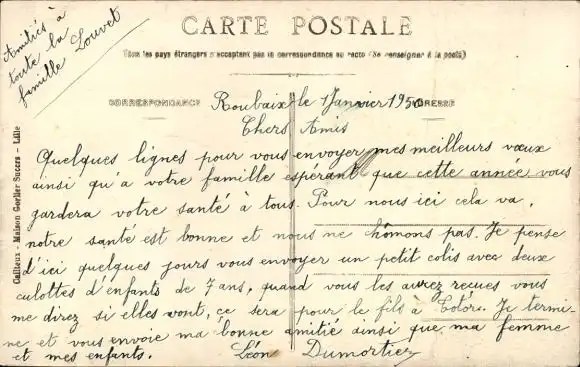 Amitiés à
toute la
famille Louvet
CARTE POSTALE
Tous les pays étrangers n'acceptent pas la correspondance au recto (Se renseigner à la poste)
CORRESPONDANCE
ADRESSE
Cailteux - Maison Gorlier Succrs - Lille
Roubaix le 1 Janvier 1950
Chers Amis
Quelques lignes pour vous envoyer mes meilleurs vœux
ainsi qu'à votre famille espérant que cette année vous
gardera votre santé à tous. Pour nous ici cela va,
notre santé est bonne et nous ne chômons pas. Je pense
d'ici quelques jours vous envoyer un petit colis avec deux
culottes d'enfants de 7 ans, quand vous les aurez recues vous
me direz si elles vont, ce sera pour le fils à Je termi-
ne et vous envoie ma bonne amitié ainsi que ma femme
et mes enfants. Léon Dumortier